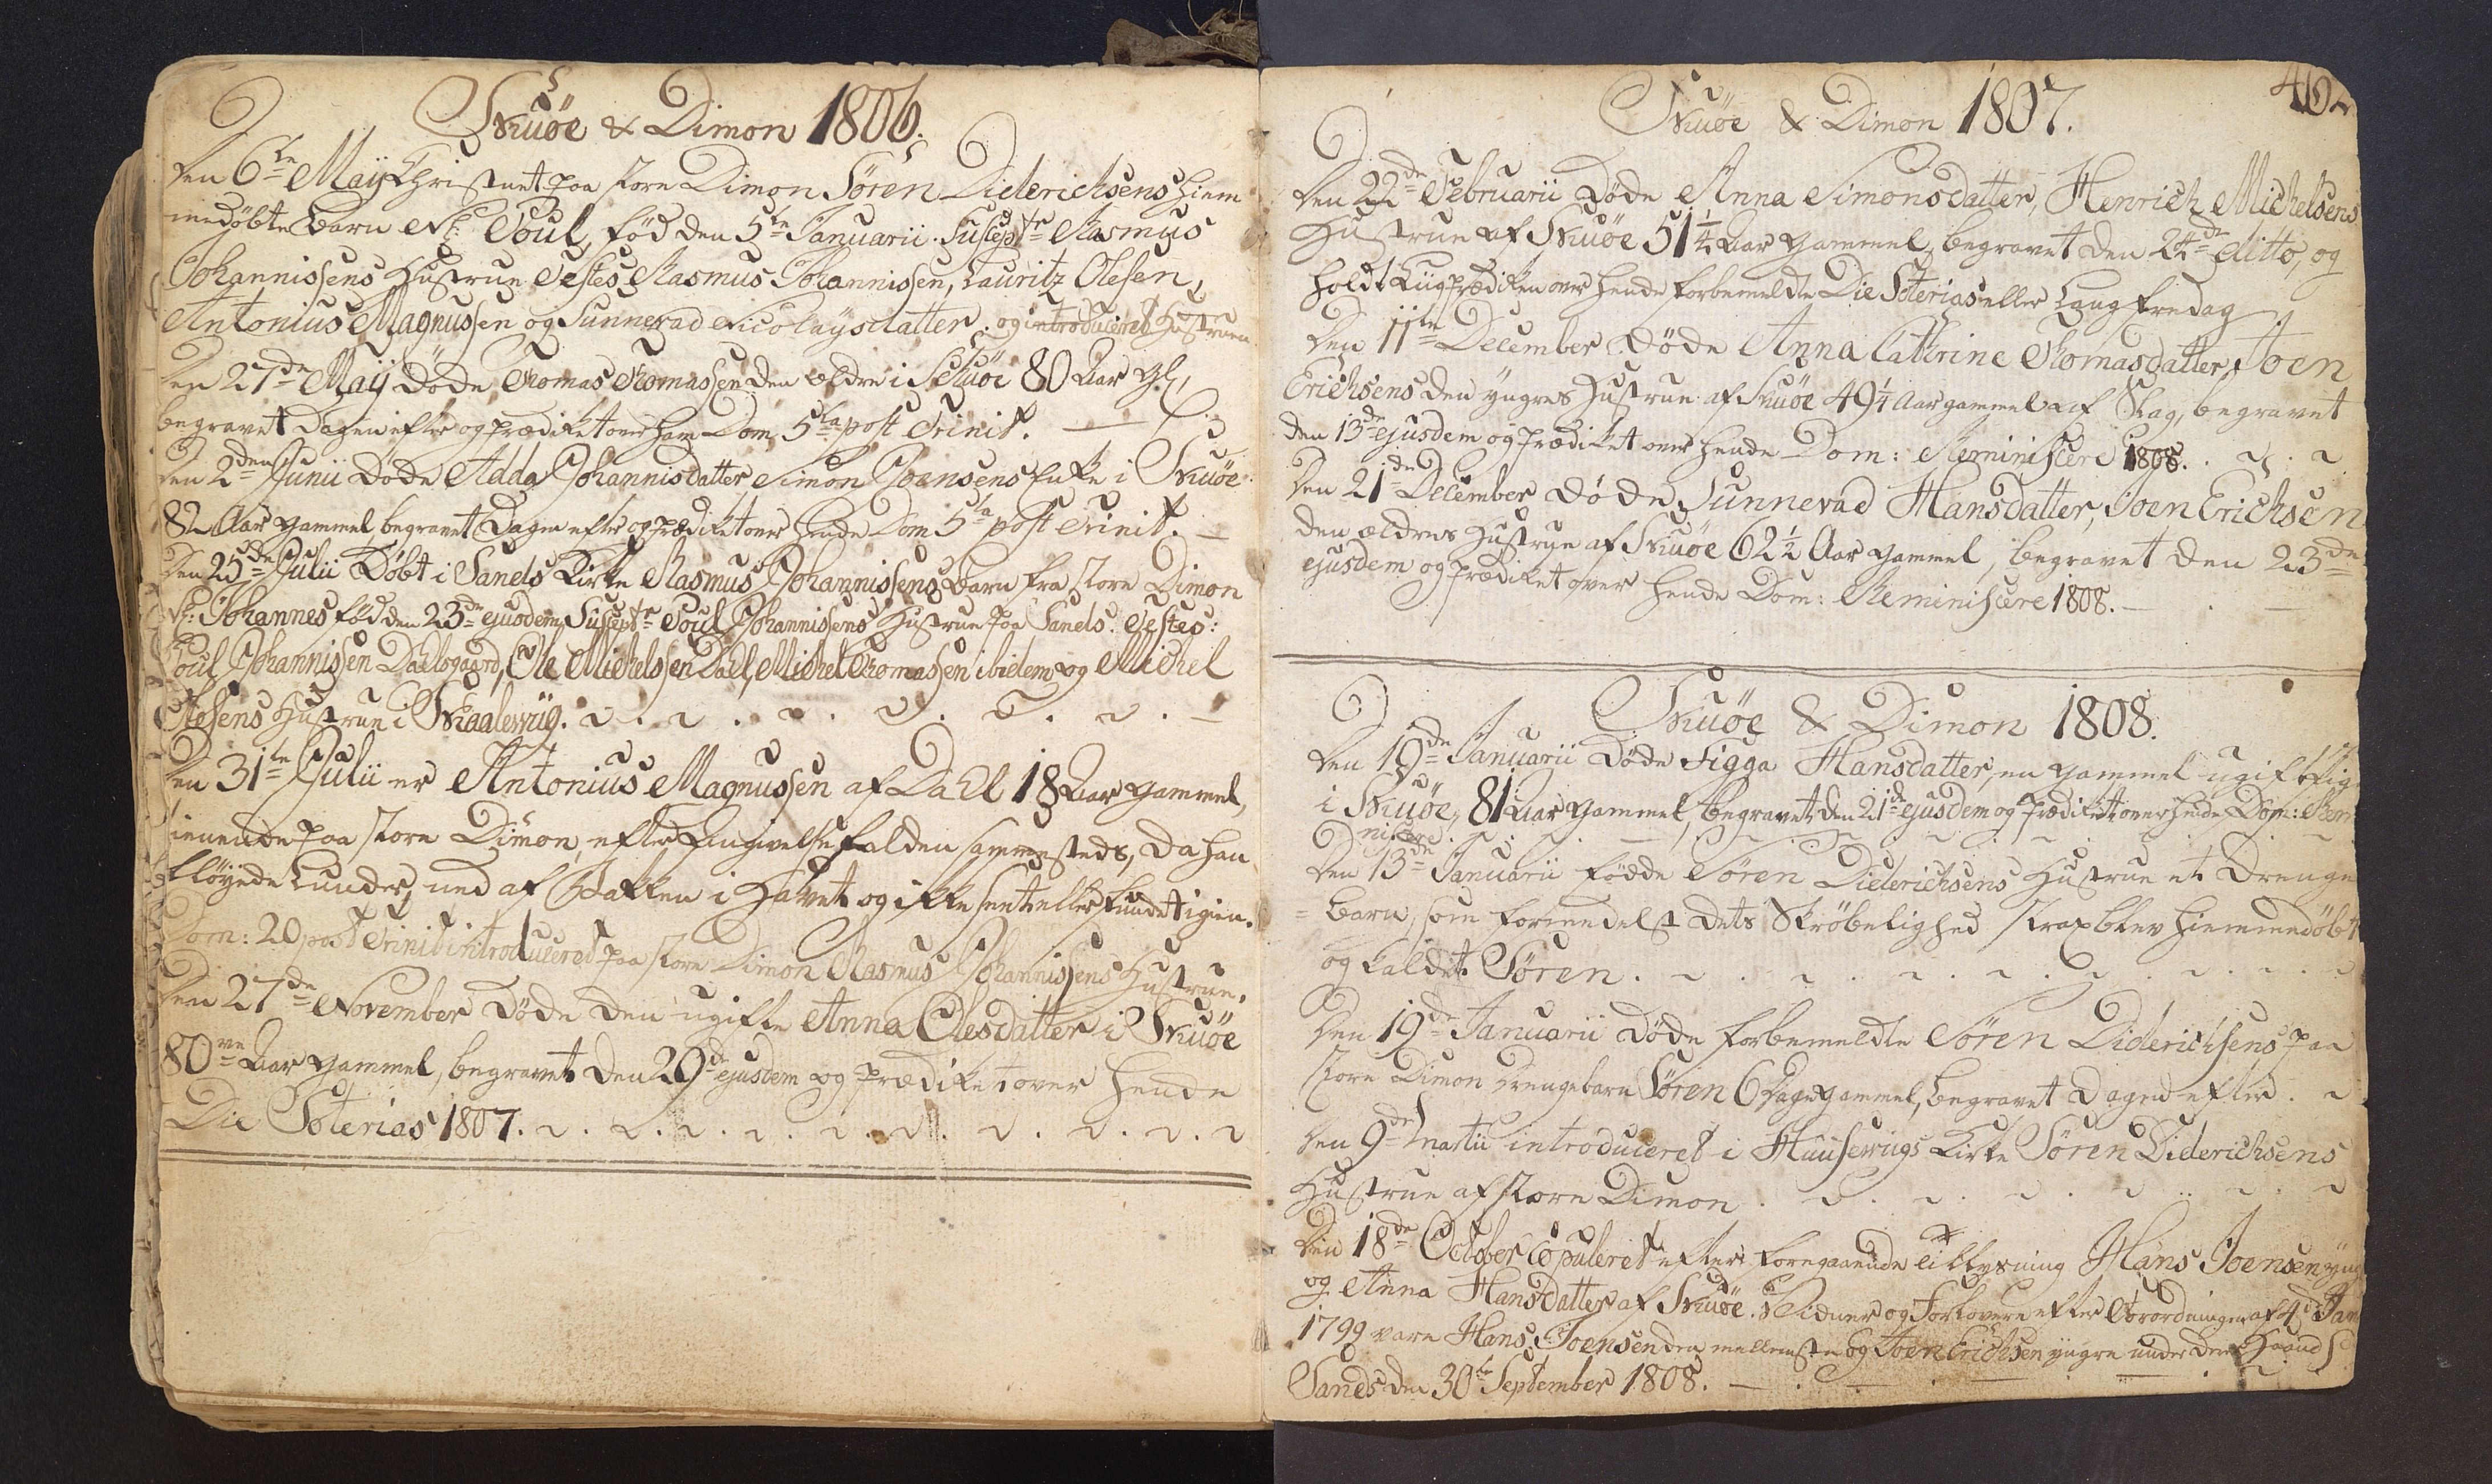 Skuöe & Dimon 1806.
Den 6te Maij Christnet paa store Dimon Sören Diderichsens hiem
medöbte Barn N: Poul, föd den 5te Januarii. Suscepte Rasmus
Johannissens Hustrue Testes Rasmus Johannissen, Lauritz Olesen,
Antonius Magnussen og Sunnevad Nicolaysdatter. og introduceret Hustruen
Den 27de Maij döde Thomas Thomassen den ældre i Skuöe 80 Aar gl,
begravet Dagen efter og prædiket over ham Dom. 5ta post Trinit.
Den 2den Junii döde Adda Johannisdatter Simon Joensens Enke i Skuöe
82 Aar gammel, begravet Dagen efter og prædiket over hende Dom 5ta post Trinit.
Den 25de Julii Döbt i Sands Kirke Rasmus Johannissens Barn fra store Dimon
N: Johannes föd den 23de ejusdem, Suscepte Poul Johannissens Hustrue paa Sands. Testes:
Poul Johannissen Dahlsgaard, Ole Michelssen Dahl, Michel Thomassen ibidem og Michel
Olesens Hustrue i Skaalevüg.
Den 31te Julii er Antonius Magnussen af Dahl 18 Aar gammel,
tienende paa store Dimon, efter Angivelse falden sammesteds, da han
fløyede Lunder, ned af Bakken i Havet og ikke seet eller fundet igien.
Dom: 20 post Trinit introduceret paa store Dimon Rasmus Johannissens Hustrue.
Den 27de November döde den ugifte Anna Olesdatter i Skuöe
80ve Aar gammel, begravet den 29de ejusdem og prædiket over hende
Die Soterias 1807.
Skuöe & Dimon 1807.
Den 22de Februarii döde Anna Simonsdatter, Henrich Michelsens
Hustrue af Skuöe 51 1/4 Aar gammel, begravet den 24de ditto, og
holdt Liigprædiken over hende forbemeldte Die Soterias eller Langfredag
Den 11te December döde Anna Cathrine Thomasdatter, Joen
Erichsens den yngres Hustrue af Skuöe 49 1/4 Aar gammel af Slag, begravet
den 13de ejusdem og prædiket over hende Dom: Reminiscere 1808.
Den 21de December döde Sunnevad Hansdatter, Joen Erichsen
den ældres Hustrue af Skuöe 62 1/2 Aar gammel, begravet den 23de
ejusdem og prædiket over hende Dom: Reminiscere 1808.
Skuöe & Dimon 1808.
Den 19de Januarii döde Sigga Hansdatter, en gammel ugift Pige
i Skuöe, 81 Aar gammel, begravet den 21de ejusdem og prædiket over hende Dom: Remi
niscere
Den 13de Januarii födde Sören Diderichsens Hustrue et Drenge
= Barn, som formedelst dets Skröbelighed strax blev hiemmedöbt
og kaldet Sören.
Den 19de Januarii döde forbemeldte Sören Diderichsens paa
store Dimon Drengebarn Sören 6 Dage gammel, begravet Dagen efter.
Den 9de Martii introduceret i Huusevügs Kirke Sören Diderichsens
Hustrue af store Dimon
Den 18de October Copuleret efter foregaaende Tillysning Hans Joensen yng
og Anna Hansdatter af Skuöe. Vidner og Forlovere efter Forordningen af 4de Jan
1799 vare Hans Joensen den mellemste og Joen Erichsen yngre under deres Haand
Sands den 30te September 1808.